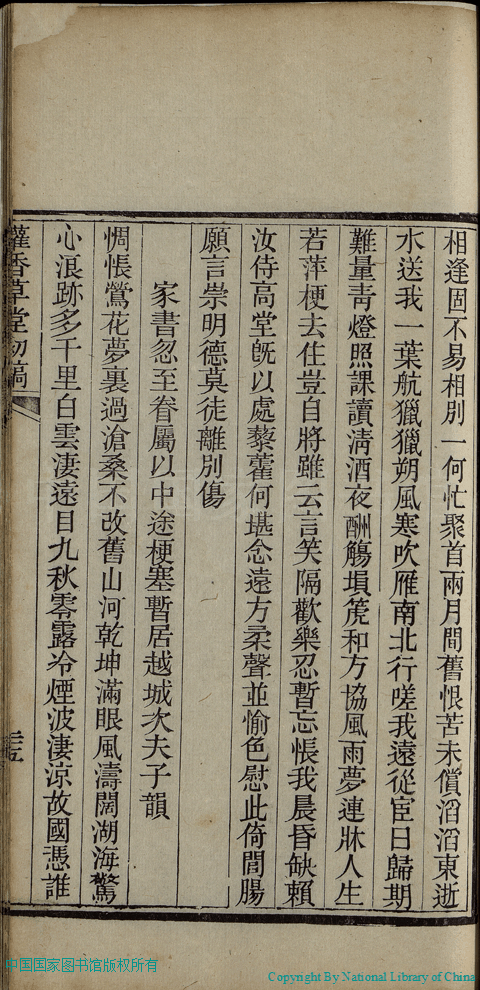 相逢固不易相別一何忙聚首兩月間舊恨苦未償滔滔東逝
水送我一葉航獵獵朔風寒吹雁南北行嗟我遠從宦日歸期
難量靑燈照課讀淸酒夜酬觴塤箎和方協風雨夢連牀人生
若萍梗去住豈自將雖云言笑隔歡樂忍暫忘悵我晨昏缺賴
汝侍高堂旣以處藜藿何堪念遠方柔聲並愉色慰此倚閭腸
願言崇明德莫徒離別傷
家書忽至眷屬以中途梗塞暫居越城次夫子韻
惆悵鶯花夢裏過滄桑不改舊山河乾坤滿眼風濤闊湖海驚
心浪跡多千里白雲淒遠目九秋零露冷煙波淒涼故國憑誰
香草堂初稿
中国国家图书馆版权所有
Copyright By National Library of China